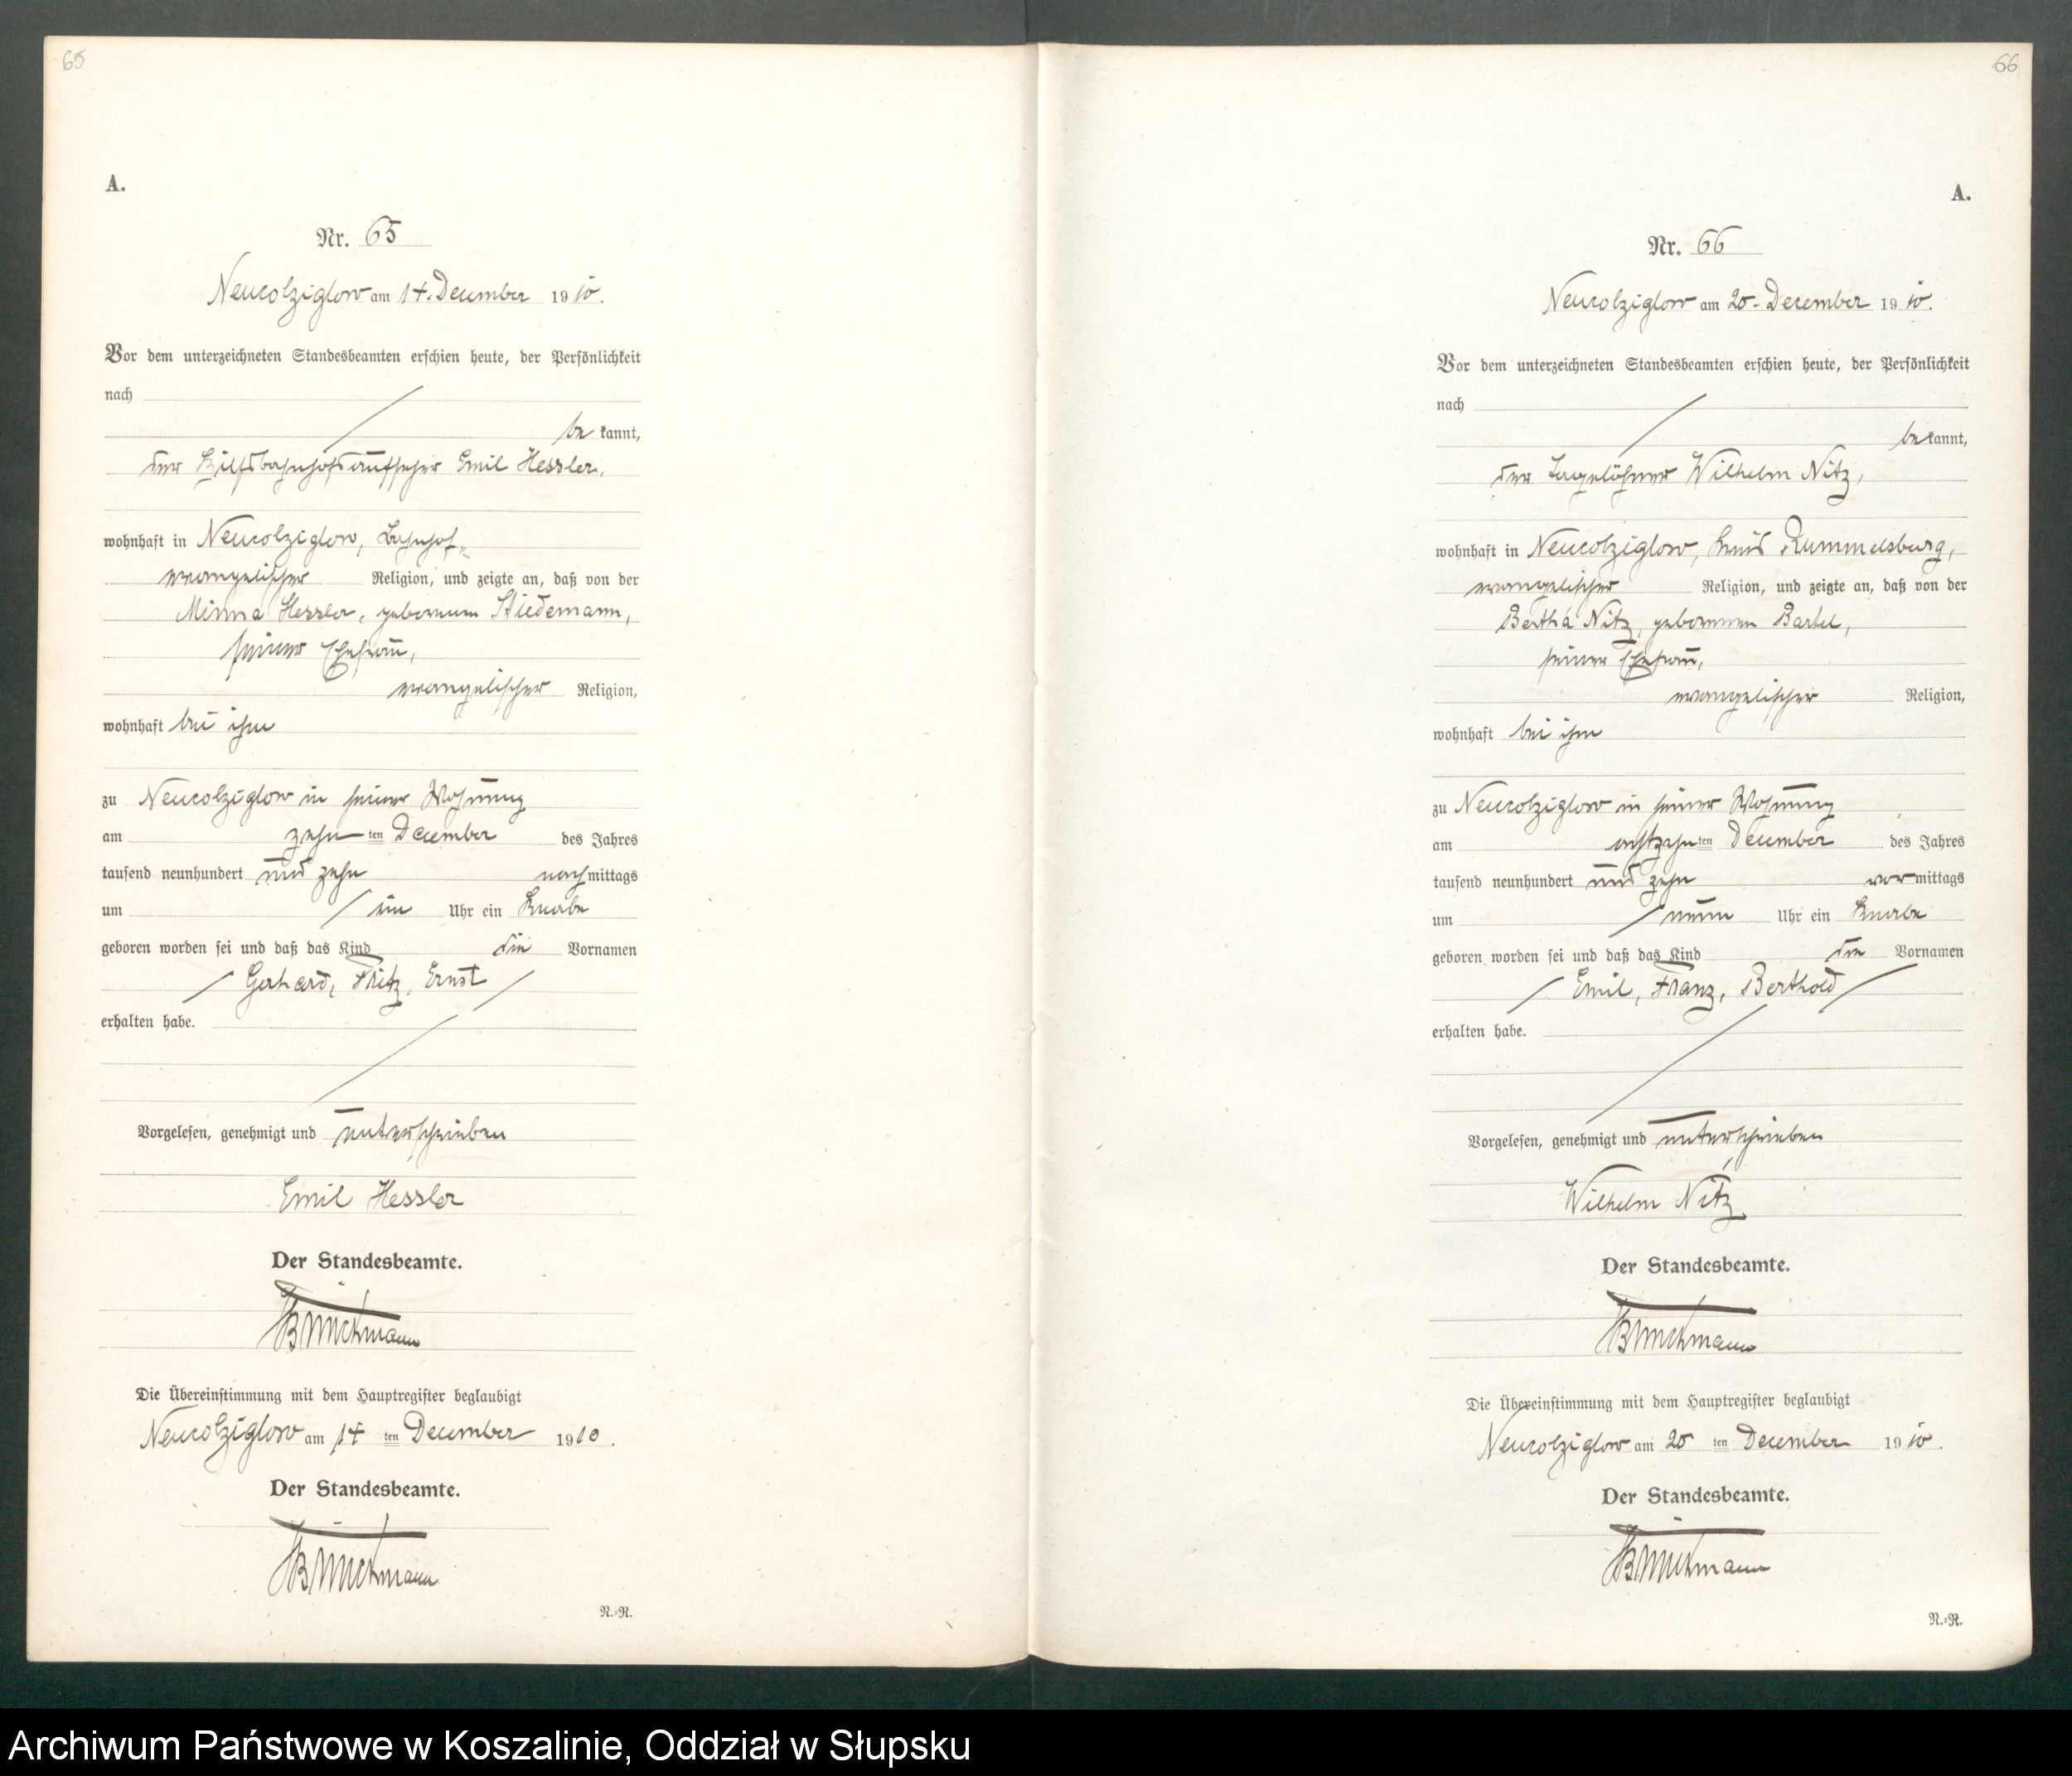 65
A.
Nr. 65
Neucolziglow am 14. December 1910.
Vor dem unterzeichneten Standesbeamten erschien heute, der Persönlichkeit
nach
be kannt,
der Hilfsbahnhofsaufseher Emil Hessler,
wohnhaft in Neucolziglow, Bahnhof,
evangelischer Religion, und zeigte an, daß von der
Minna Hessler, geborenen Stiedemann,
seiner Ehefrau,
evangelischer Religion,
wohnhaft bei ihm
zu Neucolziglow in seiner Wohnung
am zehn ten December des Jahres
tausend neunhundert und zehn nachmittags
um ein Uhr ein Knabe
geboren worden sei und daß das Kind die Vornamen
Gerhard, Fritz, Ernst
erhalten habe.
Vorgelesen, genehmigt und unterschrieben
Emil Hessler
Der Standesbeamte.
Die Übereinstimmung mit dem Hauptregister beglaubigt
Neucolziglow am 14 ten December 1910.
Der Standesbeamte.
N.-R.
66
A.
Nr. 66
Neucolziglow am 20. December 1910.
Vor dem unterzeichneten Standesbeamten erschien heute, der Persönlichkeit
nach
be kannt,
der Tagelöhner Wilhelm Nitz,
wohnhaft in Neucolziglow, Kreis Rummelsburg,
evangelischer Religion, und zeigte an, daß von der
Bertha Nitz, geborenen Bartel,
seiner Ehefrau,
evangelischer Religion,
wohnhaft bei ihm
zu Neucolziglow in seiner Wohnung
am achtzehn ten December des Jahres
tausend neunhundert und zehn vormittags
um neun Uhr ein Knabe
geboren worden sei und daß das Kind die Vornamen
Emil, Franz, Berthold
erhalten habe.
Vorgelesen, genehmigt und unterschrieben
Wilhelm Nitz
Der Standesbeamte.
Die Übereinstimmung mit dem Hauptregister beglaubigt
Neucolziglow am 20 ten December 1910.
Der Standesbeamte.
N.-R.
Archiwum Państwowe w Koszalinie, Oddział w Słupsku